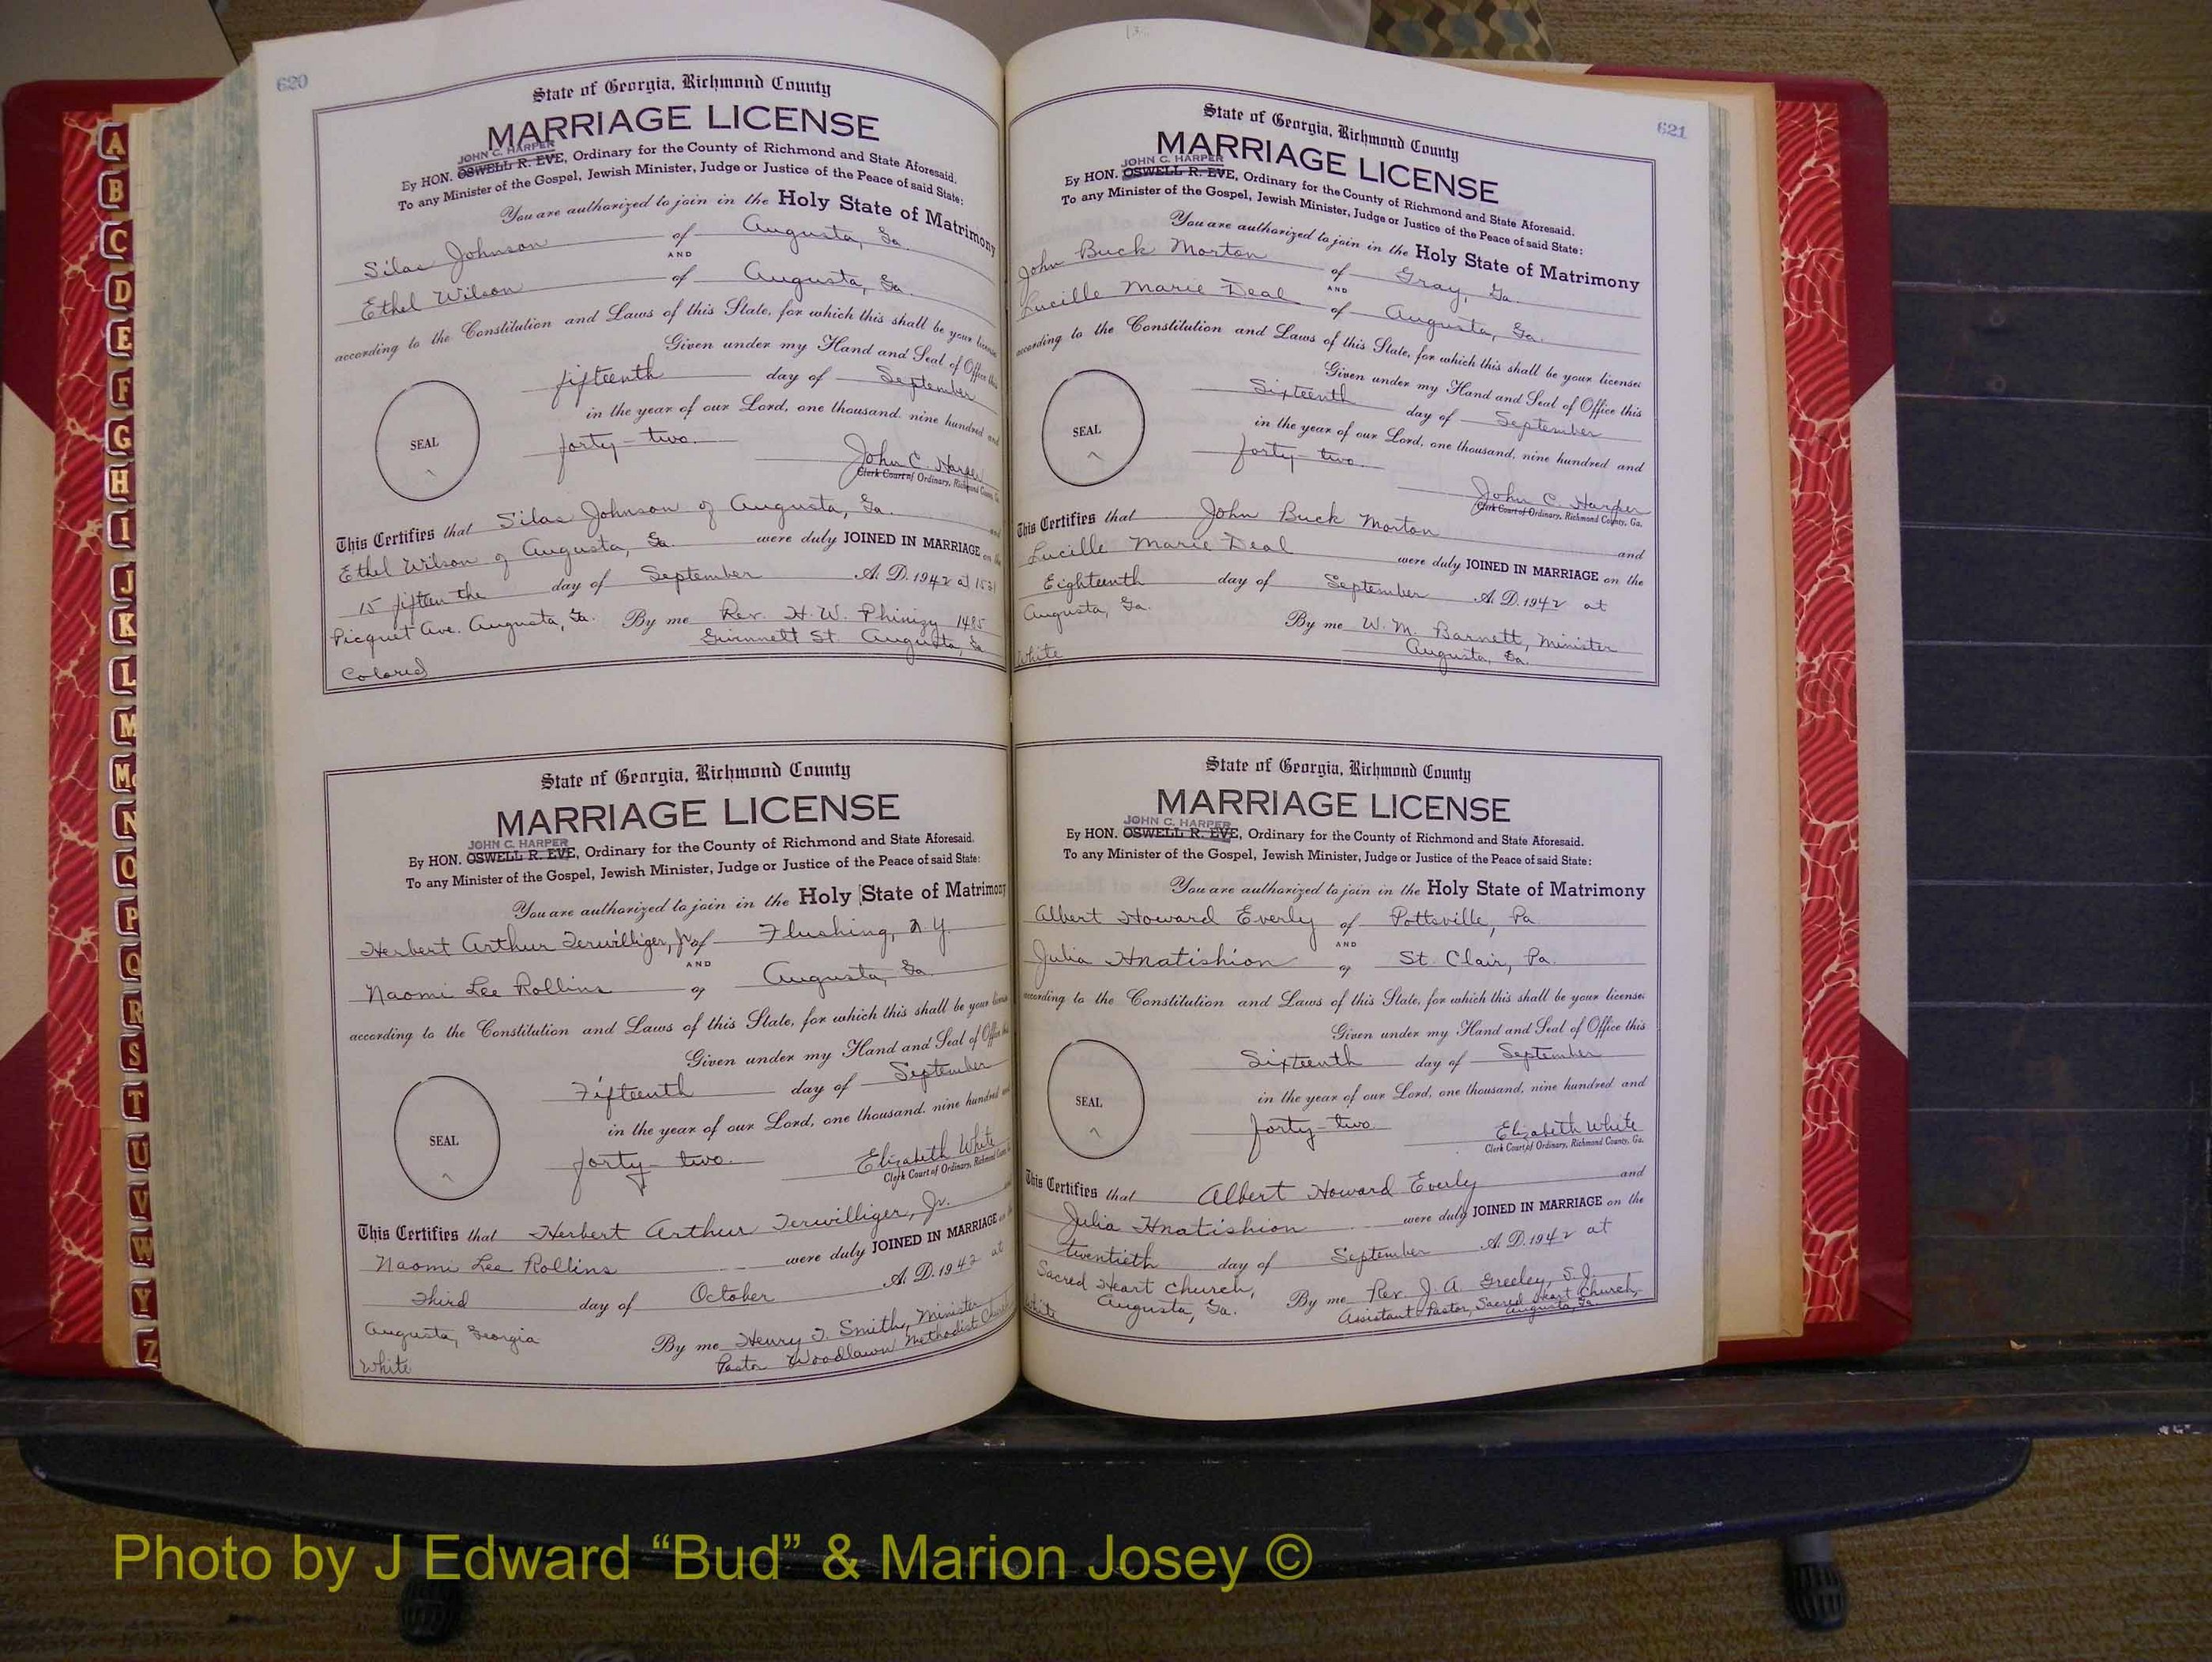 620
State of Georgia, Richmond County
MARRIAGE LICENSE
JOHN C. HARPER
By HON. OSWELL R. EVE, Ordinary for the County of Richmond and State Aforesaid.
To any Minister of the Gospel, Jewish Minister, Judge or Justice of the Peace of said State:
You are authorized to join in the Holy State of Matrimony
Silas Johnson of Augusta, Ga.
AND
Ethel Wilson of Augusta, Ga.
according to the Constitution and Laws of this State, for which this shall be your license
Given under my Hand and Seal of Office this
fifteenth day of September
in the year of our Lord, one thousand, nine hundred and
SEAL
forty-two.
John C. Harper
Clerk Court of Ordinary, Richmond County, Ga.
This Certifies that Silas Johnson of Augusta, Ga. and
Ethel Wilson of Augusta, Ga. were duly JOINED IN MARRIAGE on the
15 fifteen the day of September A. D. 1942 at
Picquet Ave. Augusta, Ga. By me Rev. H. W. Phinizy 1485
Gwinnett St. Augusta, Ga
Colored
State of Georgia, Richmond County
MARRIAGE LICENSE
JOHN C. HARPER
By HON. OSWELL R. EVE, Ordinary for the County of Richmond and State Aforesaid.
To any Minister of the Gospel, Jewish Minister, Judge or Justice of the Peace of said State:
You are authorized to join in the Holy State of Matrimony
Herbert Arthur Terwilliger, Jr. of Flushing, N.Y.
AND
Naomi Lee Rollins of Augusta, Ga.
according to the Constitution and Laws of this State, for which this shall be your license
Given under my Hand and Seal of Office this
Fifteenth day of September
in the year of our Lord, one thousand, nine hundred and
SEAL
forty-two.
Elizabeth White
Clerk Court of Ordinary, Richmond County
This Certifies that Herbert Arthur Terwilliger, Jr. and
Naomi Lee Rollins were duly JOINED IN MARRIAGE on the
Third day of October A. D. 1942 at
Augusta, Georgia By me Henry T. Smith, Minister
Pastor Woodlawn Methodist Church
White
621
State of Georgia, Richmond County
MARRIAGE LICENSE
JOHN C. HARPER
By HON. OSWELL R. EVE, Ordinary for the County of Richmond and State Aforesaid.
To any Minister of the Gospel, Jewish Minister, Judge or Justice of the Peace of said State:
You are authorized to join in the Holy State of Matrimony
John Buck Morton of Gray, Ga.
AND
Lucille Marie Deal of Augusta, Ga.
according to the Constitution and Laws of this State, for which this shall be your license:
Given under my Hand and Seal of Office this
Sixteenth day of September
in the year of our Lord, one thousand, nine hundred and
SEAL
forty-two.
John C. Harper
Clerk Court of Ordinary, Richmond County, Ga.
This Certifies that John Buck Morton and
Lucille Marie Deal were duly JOINED IN MARRIAGE on the
Eighteenth day of September A. D. 1942 at
Augusta, Ga. By me W. M. Barnett, Minister
Augusta, Ga.
White
State of Georgia, Richmond County
MARRIAGE LICENSE
JOHN C. HARPER
By HON. OSWELL R. EVE, Ordinary for the County of Richmond and State Aforesaid.
To any Minister of the Gospel, Jewish Minister, Judge or Justice of the Peace of said State:
You are authorized to join in the Holy State of Matrimony
Albert Howard Everly of Pottsville, Pa
AND
Julia Hnatishion of St. Clair, Pa.
according to the Constitution and Laws of this State, for which this shall be your license:
Given under my Hand and Seal of Office this
Sixteenth day of September
in the year of our Lord, one thousand, nine hundred and
SEAL
forty-two
Elizabeth White
Clerk Court of Ordinary, Richmond County, Ga.
This Certifies that Albert Howard Everly and
Julia Hnatishion were duly JOINED IN MARRIAGE on the
twentieth day of September A. D. 1942 at
Sacred Heart Church, By me Rev. J. A. Greeley, S.J.
Augusta, Ga. Assistant Pastor, Sacred Heart Church,
Augusta, Ga.
White
A
B
C
D
E
F
G
H
I
J
K
L
M
Mc
N
O
P
Q
R
S
T
U
V
W
Y
Z
Photo by J Edward “Bud” & Marion Josey ©